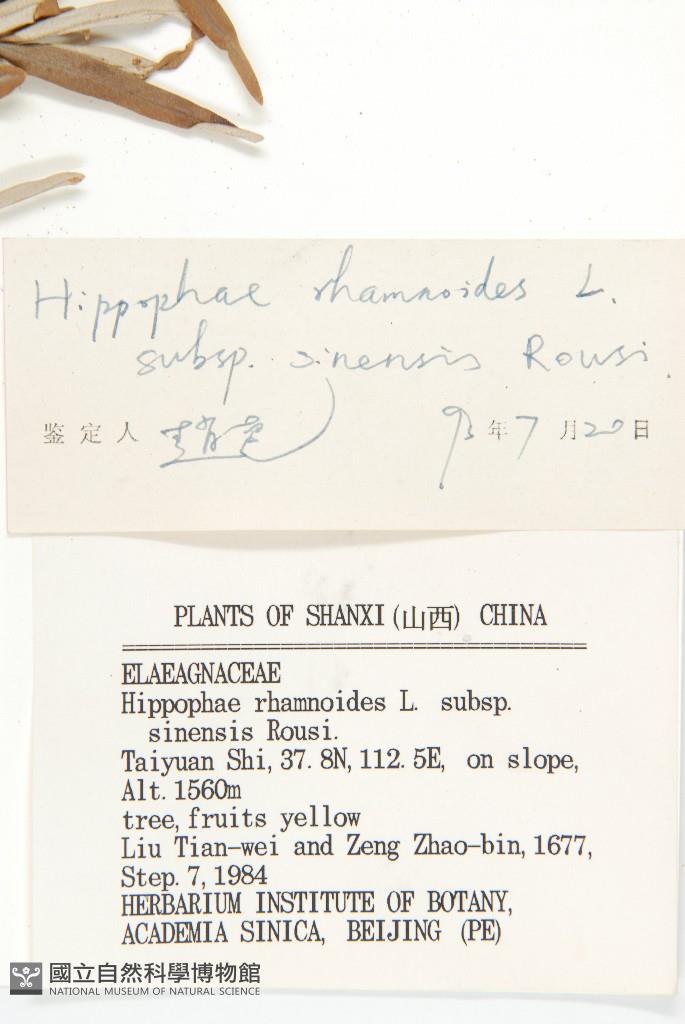 Hippophae rhamnoides L.
subsp. sinensis Rousi.
鉴定人 93年7月20日
PLANTS OF SHANXI (山西) CHINA
ELAEAGNACEAE
Hippophae rhamnoides L. subsp.
sinensis Rousi.
Taiyuan Shi, 37.8N, 112.5E, on slope,
Alt. 1560m
tree, fruits yellow
Liu Tian-wei and Zeng Zhao-bin, 1677,
Step. 7, 1984
HERBARIUM INSTITUTE OF BOTANY,
ACADEMIA SINICA, BEIJING (PE)
國立自然科學博物館
NATIONAL MUSEUM OF NATURAL SCIENCE